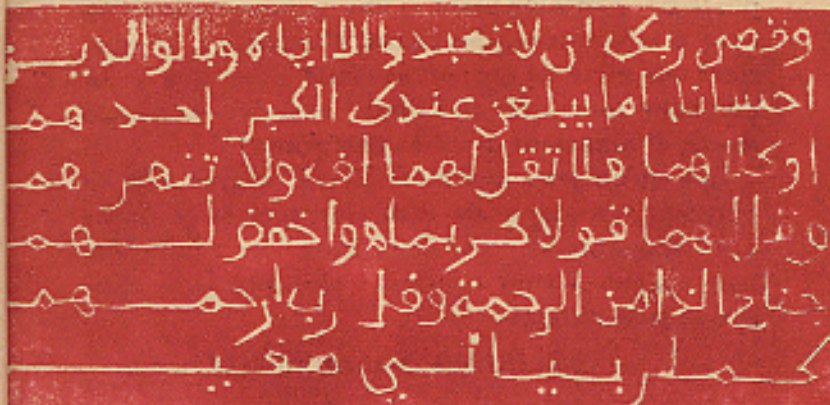 وقضى ربك ان لا تعبدوا الا اياه وبالوالدين
احسانا، اما يبلغن عندك الكبر احد هم
او كلا هما فلا تقل لهما اف ولا تنهر هم
وقل لهما قولا كريماه واخفض لهم
جناح الذل من الرحمة وقل رب ارحمهم
كما ربياني صغير